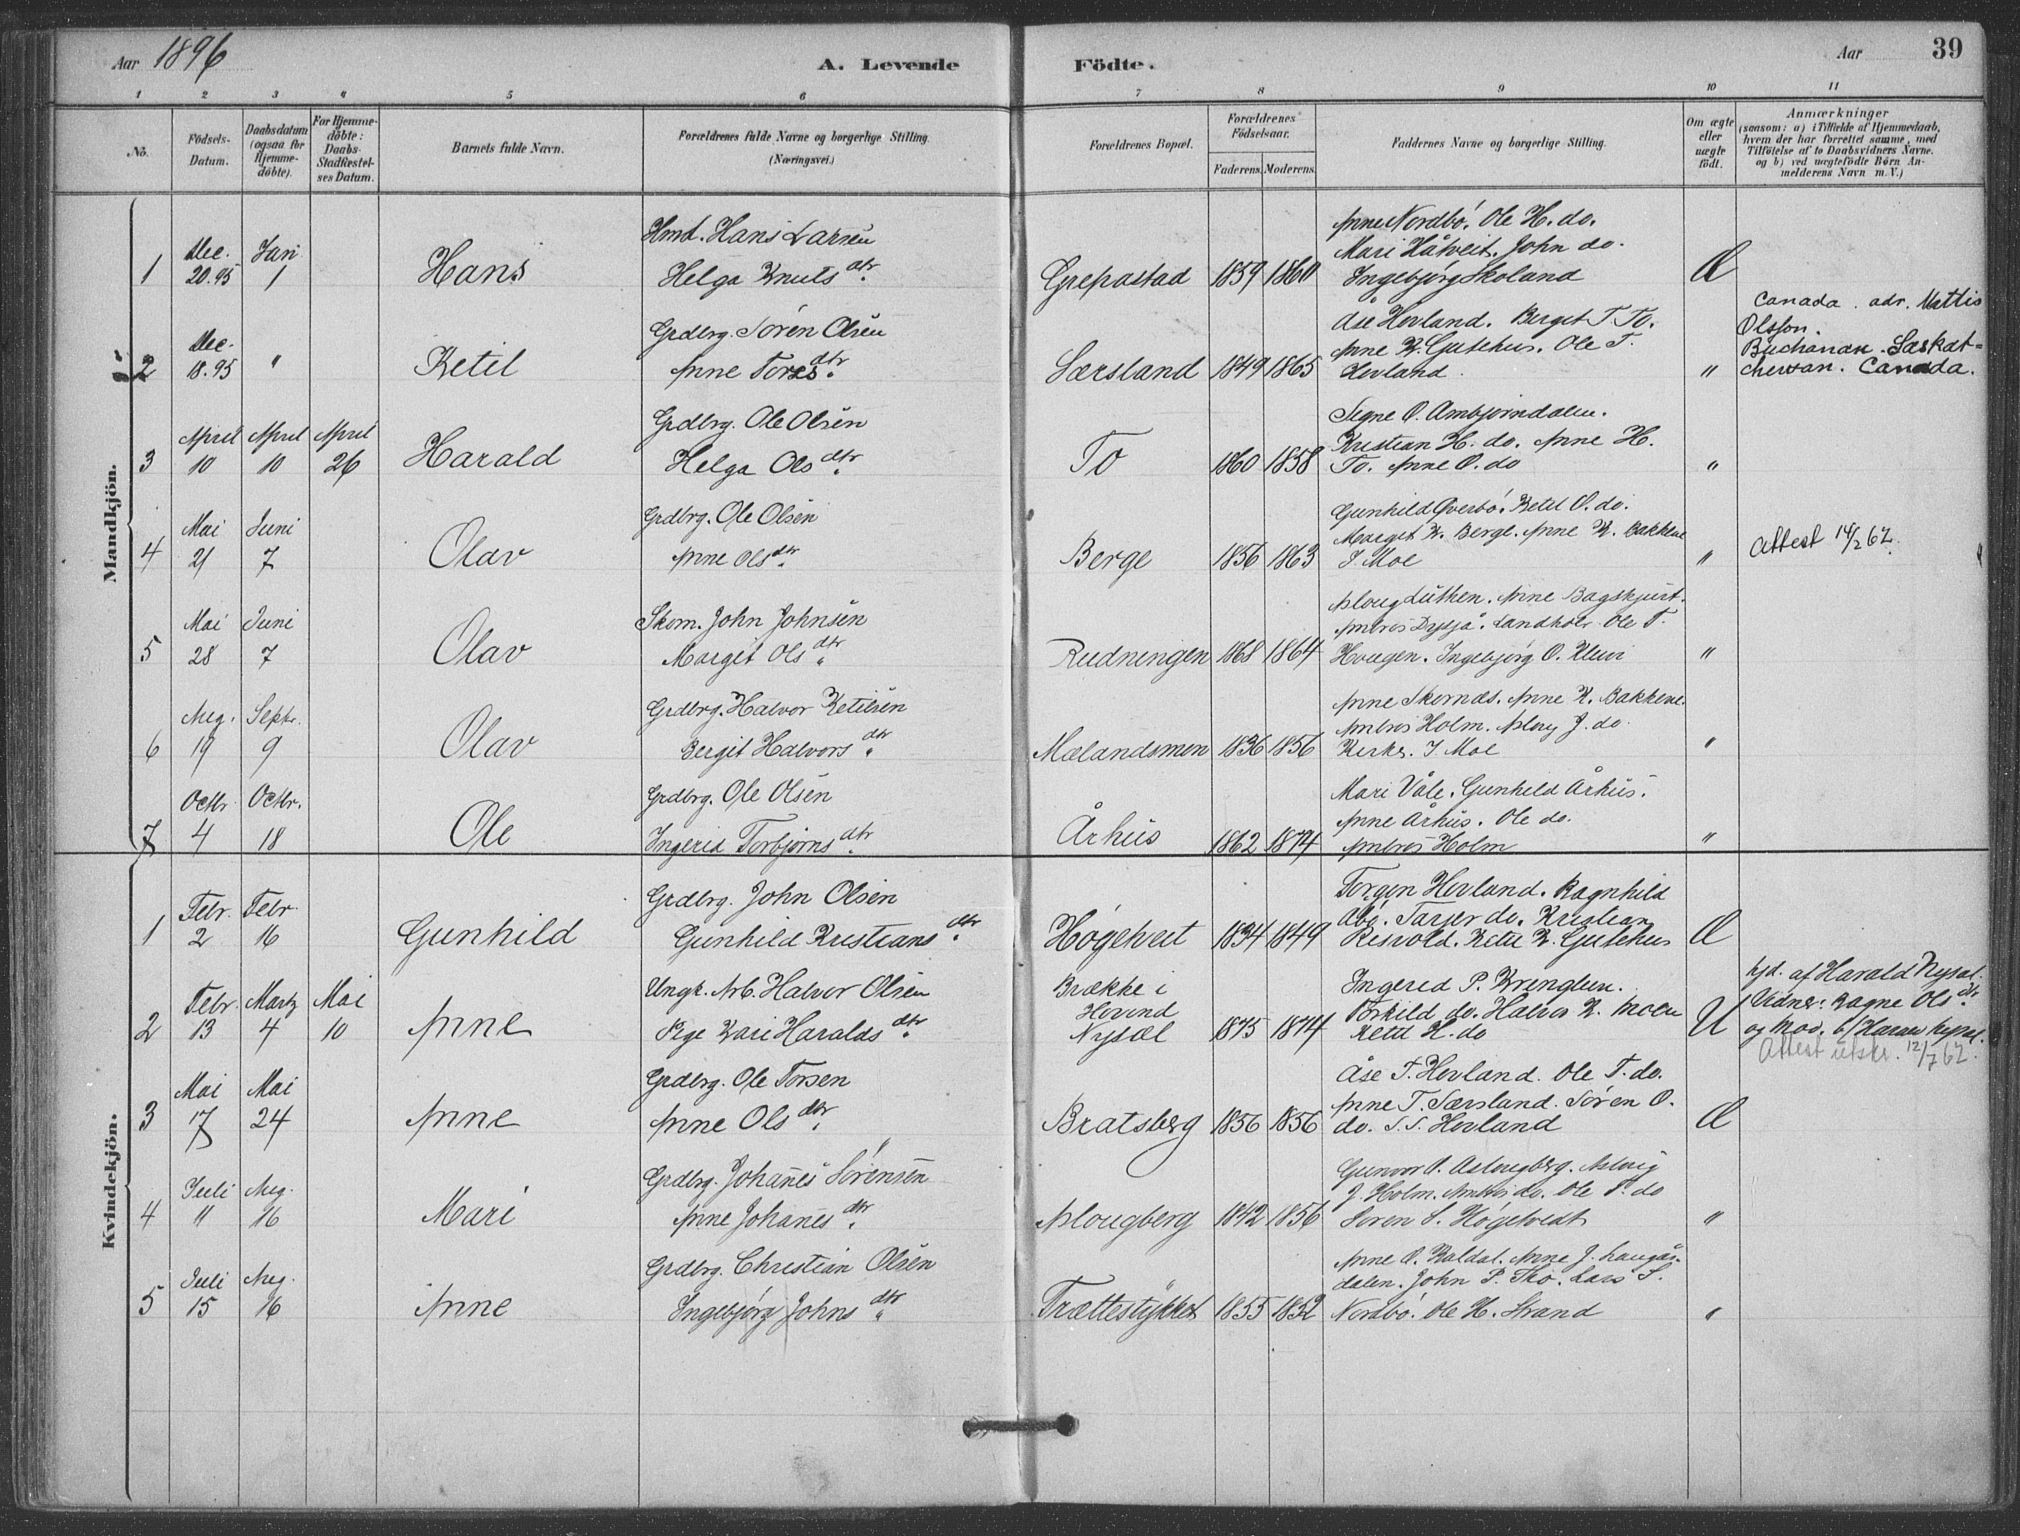 Aar 1896
A. Levende Födte.
Aar
39
1 2 3 4 5 6 7 8 9 10 11
No.
Födsels-
Datum.
Daabsdatum
(ogsaa for
Hjemme-
döbte).
For Hjemme-
döbte:
Daabs-
Stadfestel-
ses Datum.
Barnets fulde Navn.
Forældrenes fulde Navne og borgerlige Stilling.
(Næringsvei.)
Forældrenes Bopæl.
Forældrenes
Födselsaar.
Faderens. Moderens.
Faddernes Navne og borgerlige Stilling.
Om ægte
eller
uægte
födt.
Anmærkninger
(saasom: a) i Tilfælde af Hjemmedaab,
hvem der har forrettet samme, med
Tilföielse af to Daabsvidners Navne.
og b) ved uægtefödte Börn An-
melderens Navn m. V.)
Mandkjön.
1 Dec. 20.95 Jan 1 Hans
Hmd. Hans Larsen
Helga Knuts dtr.
Grepastad 1859 1860
Anne Nordbö. Ole H. do.
Mari Håtveit. John do.
Ingebjørg Skoland
Æ
2 Dec. 18.95 " Ketil
Grdbrg. Sören Olsen
Anne Tores dtr.
Særsland 1849 1865
Åse Hovland. Berget T To.
Anne K. Gutehus. Ole T.
Hovland.
"
Canada. adr. Mattis
Olsson.
Buchanan. Saskat-
chewan. Canada.
3 April 10 April 10 April 26 Harald
Grdbrg. Ole Olsen
Helga Ols dtr.
To 1860 1858
Signe O. Ambjørndalen.
Kristian H. do. Anne H.
To. Anne O. do
"
4 Mai 21 Juni 7 Olav
Grdbrg. Ole Olsen
Anne Ols dtr.
Berge 1856 1863
Gunhild Øverbö. Ketil O. do.
Margit K. Berge. Anne K. Bakkene
J Moe
"
Attest 14/2 62.
5 Mai 28 Juni 7 Olav
Skom. John Johnsen
Margit Ols dtr.
Rudningen 1868 1864
Aslaug Luthen. Anne Bagskjust.
Ambros Dysjå. Landhdlr. Ole T.
Haugen. Ingebjørg O. Kleivi
"
6 Aug. 19 Septr. 9 Olav
Grdbrg. Halvor Ketilsen
Bergit Halvors dtr.
Mælandsmoen 1836 1856
Anne Skornæs. Anne K. Bakkene.
Ambros Holm. Aslaug J. do.
Kirks. J Moe
"
7 Octbr. 4 Octbr. 18 Ole
Grdbrg. Ole Olsen
Ingerid Torbjørns dtr.
Århus 1862 1874
Mari Våle. Gunhild Århus.
Anne Århus. Ole do.
Ambros Holm
"
Kvindekjön.
1 Febr. 2 Febr. 16 Gunhild
Grdbrg. John Olsen
Gunhild Kristians dtr.
Høgetveit 1834 1849
Torgon Hovland. Ragnhild
Åbø. Tarjer do. Kristian
Risvold. Ketil K. Gutehus
Æ
2 Febr. 13 Martz 4 Mai 10 Anne
Ungk. Arb. Halvor Olsen
Pige Kari Haralds dtr.
Brække i
Hovind
Nysæl 1875 1874
Ingerid P. Kringlen.
Eskild do. Halvor K. Moen
Ketil H. do
U
hjd. af Harald Nysæl.
Vidner: Ragne Ols dtr.
og Mod. b/ Haral Nysæl.
Attest utskr. 12/7 62.
3 Mai 17 Mai 24 Anne
Grdbrg. Ole Torsen
Anne Ols dtr.
Bratsberg 1856 1856
Åse T. Hovland. Ole T. do.
Anne T. Særsland. Sören O.
do. S. S. Hovland
Æ
4 Juli " Aug. 16 Mari
Grdbrg. Johanes Sörensen
Anne Johanes dtr.
Aslougberg 1842 1856
Gunvor O. Aslougberg. Aslaug
J. Holm. Ambros do. Ole P. do
Soren S. Høgetvedt
"
5 Juli 15 Aug. 16 Anne
Grdbrg. Christian Olsen
Ingebjørg Johns dtr.
Trættestykket 1855 1852
Anne O. Kaldal. Anne J. Laugås-
dalen. John P. Sko. Lars S.
Nordbö. Ole H. Strand
"